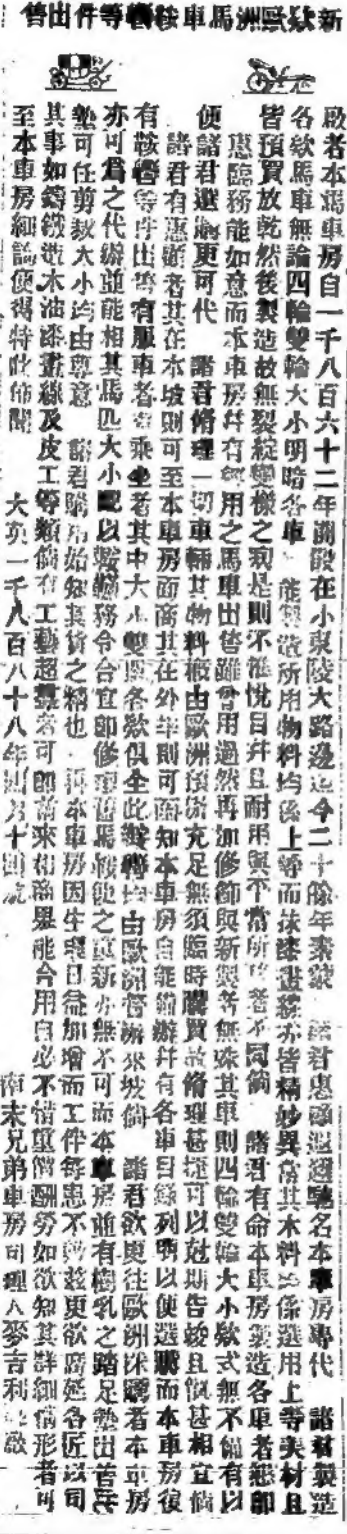 新欵歐洲馬車鞍轡等件出售
啟者本馬車房自一千八百六十二年開設在小東陵大路邊迄今二十餘年素蒙 諸君惠顧遐邇馳名本車房專代 諸君製造
各欵馬車無論四輪雙輪大小明暗各車 能製造所用物料均係上等而抹漆畫線亦皆精妙異常其木料 係選用上等美材且
皆預買放乾然後製造故無裂綻變樣之 是則不惟悅目幷且耐用與平常所 者不同倘 諸君有命本車房製造各車者懇卽
惠臨務能如意而本車房幷有經用之馬車出售雖曾用過然再加修飾與新製者無殊其車則四輪雙輪大小欵式無不備有以
便諸君選購更可代 諸君脩理一切車輛其物料概由歐洲預 充足無須臨時購買故脩理甚捷可以尅期告竣且價甚相宜倘
諸君有惠顧者其在本坡則可至本車房面商其在外埠則可函知本車房自能 辦幷有各車目錄列明以便選購而本車房復
有鞍轡等件出售有服車者 乘坐者其中大小雙單各欵俱全此鞍轡均由歐洲督辦來坡倘 諸君欲更往歐洲採購者本車房
亦可爲之代辦並能相其馬匹大小配以鞍轡務令合宜卽修理舊馬鞍使之更新亦無不可而本車房並有樹乳之踏足墊出售其
墊可任剪裁大小均由尊意 諸君購用始知其貨之精也 再本車房因生理日益加增而工件每患不 茲更欲廣延各匠以司
其事如鑄鐵造木油漆畫線及皮工等類倘有工藝超羣者可卽前來相商果能合用自必不惜重價酬勞如欲知其詳細情形者可
至本車房細詢便得特此佈聞
大英一千八百八十八年四月十四號
南末兄弟車房司理人麥吉利 啟